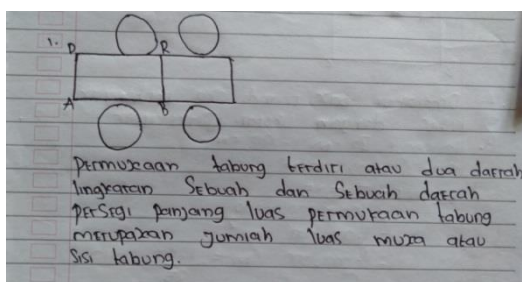 1.
D R
A B
permukaan tabung terdiri atau dua daerah
lingkaran sebuah dan sebuah daerah
persegi panjang luas permukaan tabung
merupakan jumlah luas muka atau
sisi tabung.